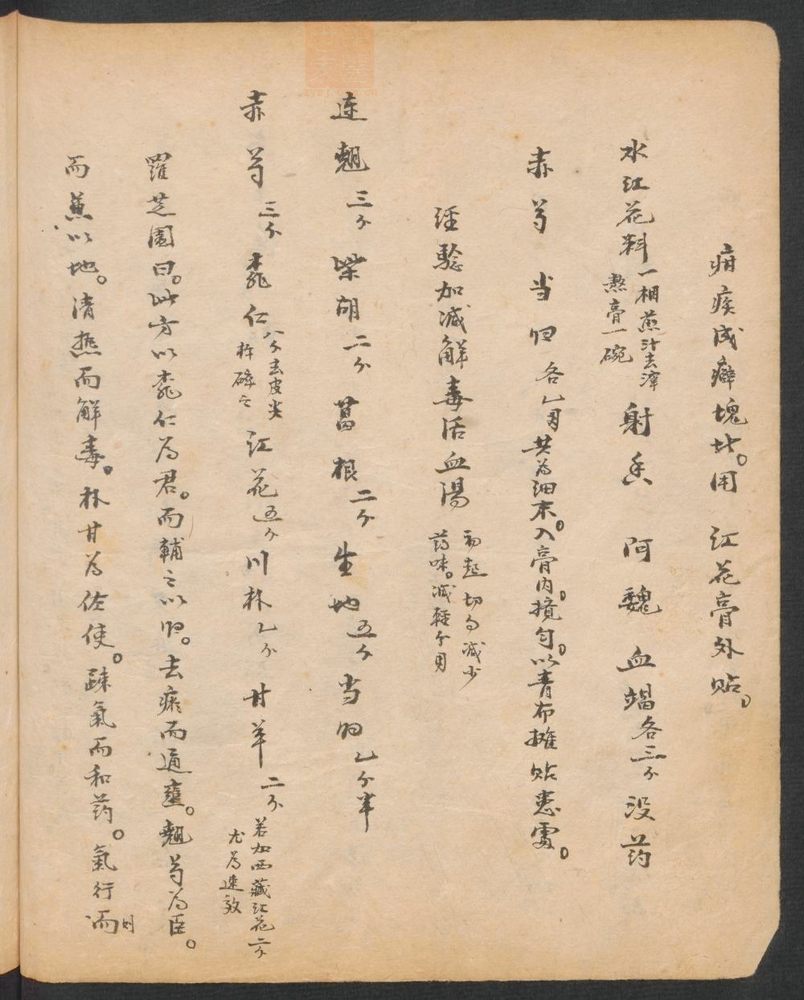 疳疾成癖塊者。用　红花膏外贴。
水红花料一梱煎汁去渣熬膏一碗　射香　阿魏　血竭各三分　没药
赤芍　当归　各乙刄　共为细末。入膏内。搅匀。以青布摊贴患处。
经驗加减解毒活血湯　初起切勿减少药味。减轻分刄
连翹三分　柴胡二分　葛根二分　生地五分　当归乙分半
赤芍三分　桃仁八分去皮尖杵碎之　红花五分　川朴乙分　甘草二分　若加西藏红花二分尤为速效
羅芝園曰。此方以桃仁为君。而輔之以归。去瘀而通壅。翹芍为臣。
而兼以地。清热而解毒。朴甘为佐使。疎氣而和药。氣行而